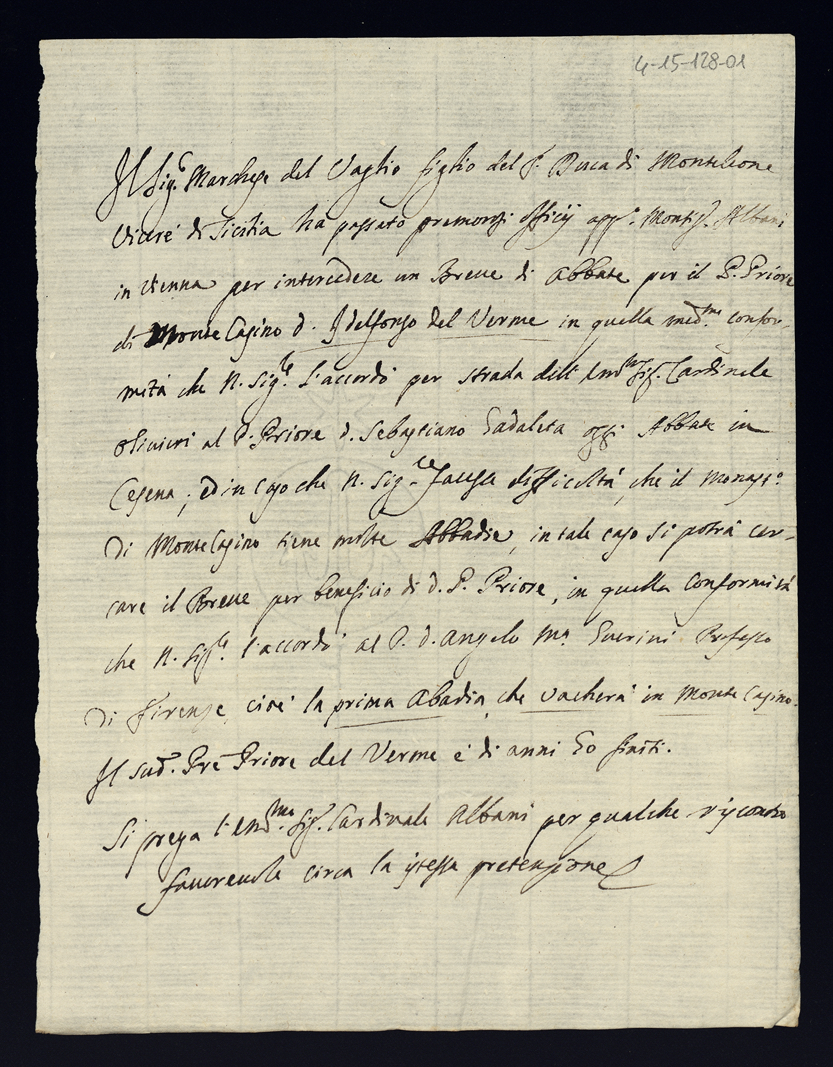 4-15-128-01
Il Sig.r Marchese del Vaglio figlio del S. Duca di Monteleone
Vicerè di Sicilia ha passato premorosi officij app.o Monsig.r Albani
in Vienna per intercedere un Breve di Abbate per il P. Priore
di Monte Casino d. Idelfonso del Verme in quella med.ma confor-
mità che N. Sig.re l'accordò per strada dell' Em.mo Sig. Cardinale
Olivieri al P. Priore d. Sebastiano Gadaleta oggi Abbate in
Cesena; ed in caso che N. Sig.re facesse difficoltà, che il Monast.o
di Monte Casino tiene molte Abbadie, in tale caso si potrà cer-
care il Breve per beneficio di d. P. Priore, in quella conformità
che N. Sig.re l'accordò al P. d. Angelo M.a Guerini Professo
di Firenze, cioè la prima Abadia, che vacherà in Monte Casino.
Il sud.o Pre Priore del Verme è di anni 50 finiti.
Si prega l'Em.mo Sig. Cardinale Albani per qualche riscontro
favorevole circa la istessa pretensione